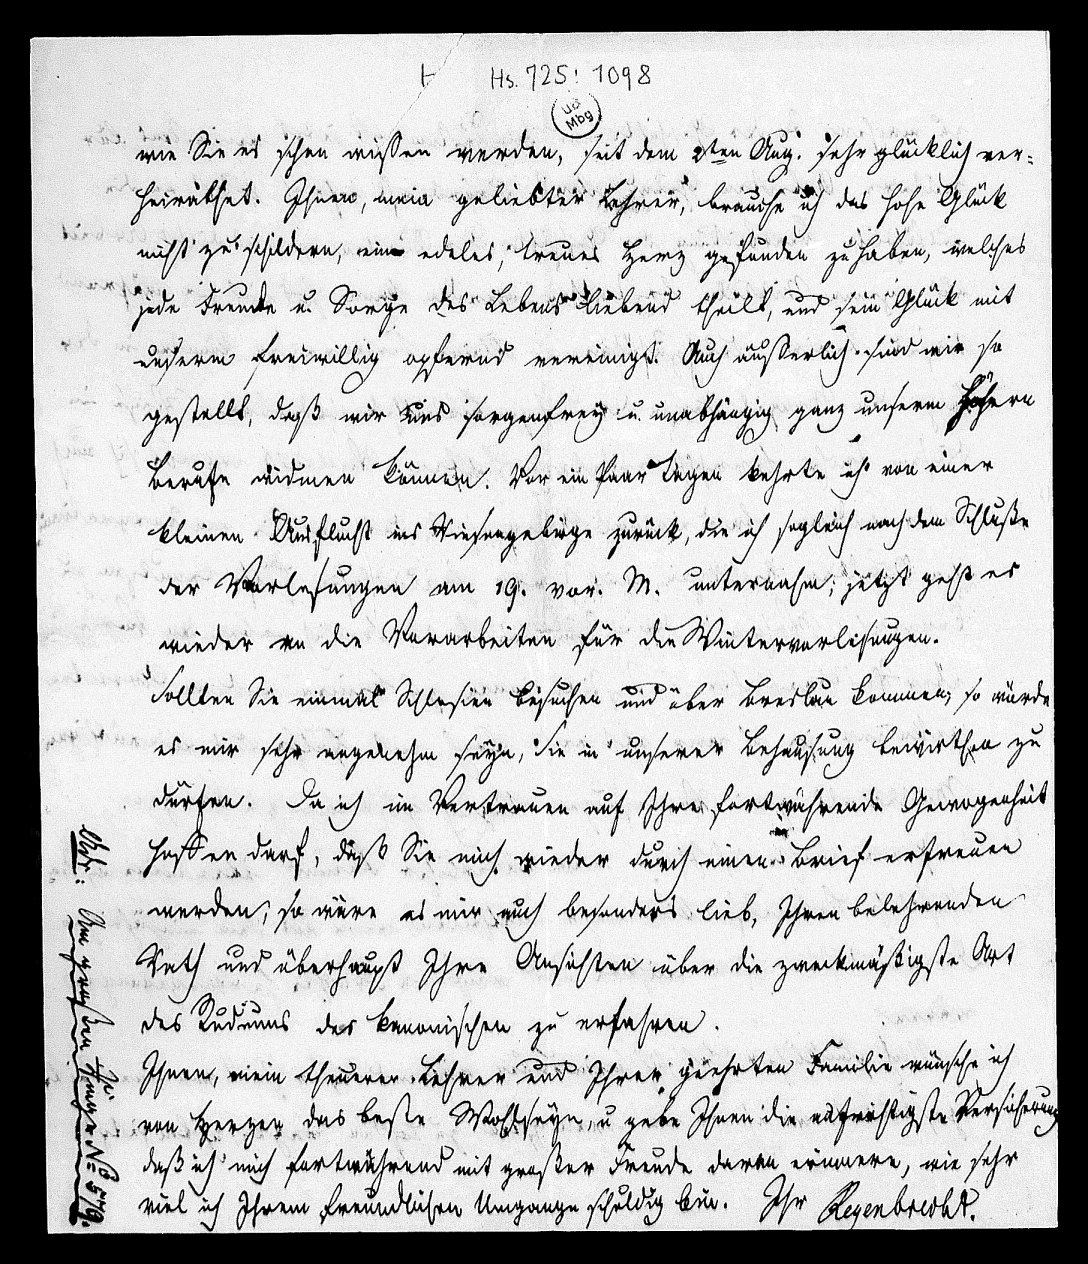 Hs. 725: 1098
UB
Mbg
wie Sie es schon wissen werden, seit dem 2ten Aug. sehr glücklich ver-
heirathet. Ihnen, mein geliebter Lehrer, brauche ich das hohe Glück
nicht zu schildern, ein edeles, treues Herz gefunden zu haben, welches
jede Freude u. Sorge des Lebens liebend theilt, und sein Glück mit
unserm freiwillig opfernd vereinigt. Auch äusserlich sind wir so
gestellt, daß wir uns sorgenfrey u. unabhängig ganz unserm höhern
Berufe widmen können. Vor ein Paar Tagen kehrte ich von einer
kleinen Ausflucht ins Riesengebirge zurück, die ich sogleich nach dem Schluße
der Vorlesungen am 19. vor. M. unternahm; jetzt geht es
wieder an die Vorarbeiten für die Wintervorlesungen.
Sollten Sie einmal Schlesien besuchen und über Breslau kommen, so würde
es mir sehr angenehm seyn, Sie in unserer Behausung bewirthen zu
dürfen. Da ich im Vertrauen auf Ihre fortwährende Gewogenheit
hoffen darf, daß Sie mich wieder durch einen Brief erfreuen
werden, so wäre es mir auch besonders lieb, Ihren belehrenden
Rath und überhaupt Ihre Ansichten über die zweckmäßigste Art
des Studiums des kanonischen zu erfahren.
Ihnen, mein theurer Lehrer und Ihrer geehrten Familie wünsche ich
von Herzen das beste Wohlseyn, u gebe Ihnen die aufrichtigste Versicherung
daß ich mich fortwährend mit großer Freude daran erinnere, wie sehr
viel ich Ihrem freundlichen Umgange schuldig bin. Ihr Regenbrecht.
Adr: Am großen Ringe No 579.